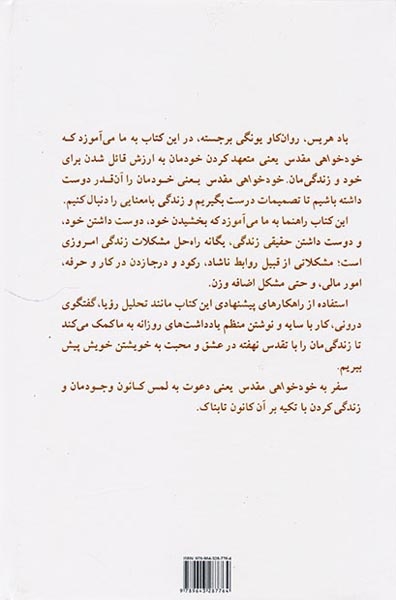 باد هریس، روان‌کاو یونگی برجسته، در این کتاب به ما می‌آموزد که
خودخواهی مقدس یعنی متعهد کردن خودمان به ارزش قائل شدن برای
خود و زندگی‌مان. خودخواهی مقدس یعنی خودمان را آن‌قدر دوست
داشته باشیم تا تصمیمات درست بگیریم و زندگی بامعنایی را دنبال کنیم.
این کتاب راهنما به ما می‌آموزد که بخشیدن خود، دوست داشتن خود،
و دوست داشتن حقیقی زندگی، یگانه راه‌حل مشکلات زندگی امروزی
است؛ مشکلاتی از قبیل روابط ناشاد، رکود و درجازدن در کار و حرفه،
امور مالی، و حتی مشکل اضافه وزن.
استفاده از راهکارهای پیشنهادی این کتاب مانند تحلیل رؤیا، گفتگوی
درونی، کار با سایه و نوشتن منظم یادداشت‌های روزانه به ما کمک می‌کند
تا زندگی‌مان را با تقدس نهفته در عشق و محبت به خویشتن خویش پیش
ببریم.
سفر به خودخواهی مقدس یعنی دعوت به لمس کانون وجودمان و
زندگی کردن با تکیه بر آن کانون تابناک.
ISBN 978-964-328-776-4
9789643287764